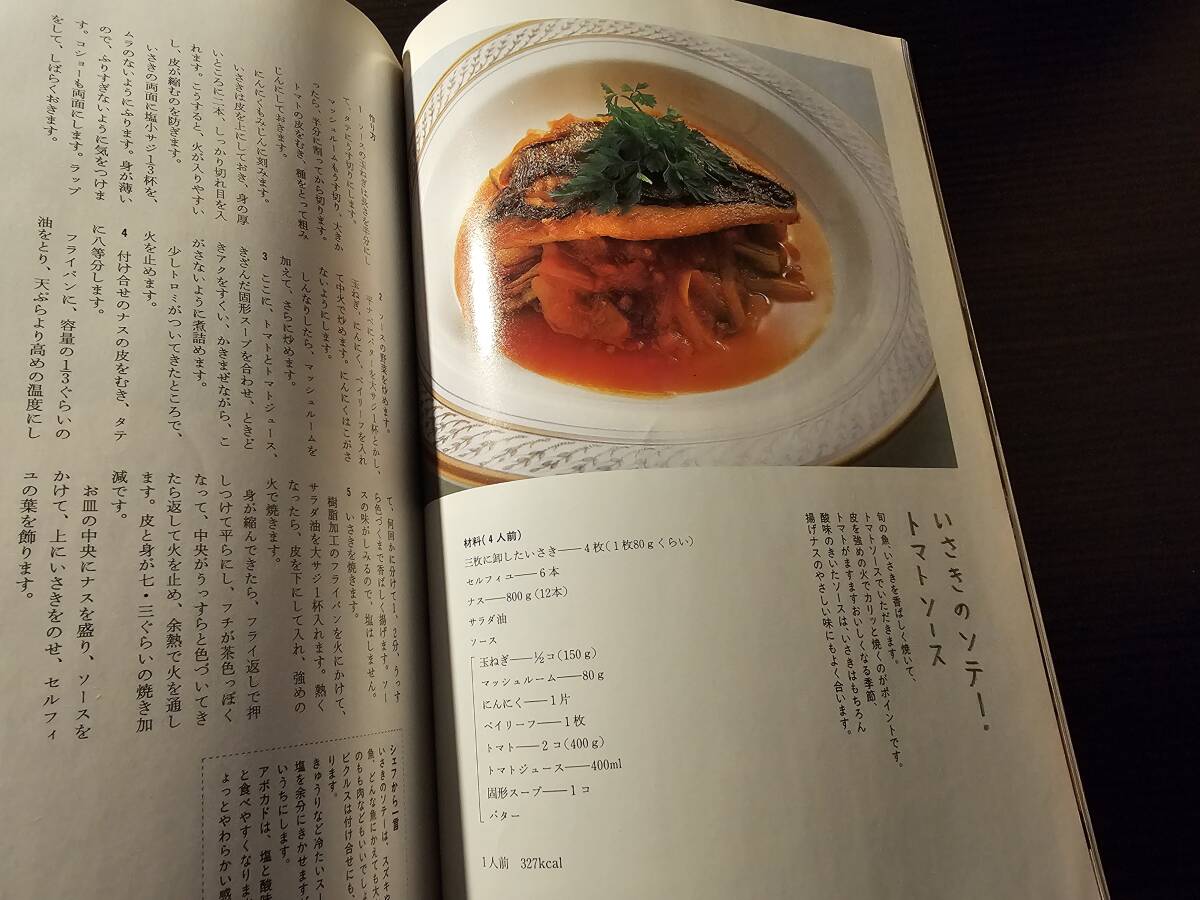 いさきのソテー・
トマトソース
旬の魚、いさきを香ばしく焼いて、
トマトソースでいただきます。
皮を強めの火でカリッと焼くのがポイントです。
トマトがますますおいしくなる季節、
酸味のきいたソースは、いさきはもちろん
揚げナスのやさしい味にもよく合います。
材料(4人前)
三枚に卸したいさき──4枚(1枚80gくらい)
セルフィユ──6本
ナス──800g(12本)
サラダ油
ソース
玉ねぎ──½コ(150g)
マッシュルーム──80g
にんにく──1片
ベイリーフ──1枚
トマト──2コ(400g)
トマトジュース──400ml
固形スープ──1コ
バター
1人前 327kcal
作り方
1 ソースの玉ねぎは長さを半分にし
て、タテにうす切りにします。
マッシュルームもうす切り、大きか
ったら、半分に割ってから切ります。
トマトの皮をむき、種をとって粗み
じんにしておきます。
にんにくもみじんに刻みます。
いさきは皮を上にしておき、身の厚
いところに二本、しっかり切れ目を入
れます。こうすると、火が入りやすい
し、皮が縮むのを防ぎます。
いさきの両面に塩小サジ1⁄3杯を、
ムラのないようにふります。身が薄い
ので、ふりすぎないように気をつけま
す。コショーも両面にします。ラップ
をして、しばらくおきます。
2 ソースの野菜を炒めます。
平ナベにバターを大サジ1杯とかし、
玉ねぎ、にんにく、ベイリーフを入れ
て中火で炒めます。にんにくはこがさ
ないようにします。
しんなりしたら、マッシュルームを
加えて、さらに炒めます。
3 ここに、トマトとトマトジュース、
きざんだ固形スープを合わせ、ときど
きアクをすくい、かきまぜながら、こ
がさないように煮詰めます。
少しトロミがついてきたところで、
火を止めます。
4 付け合せのナスの皮をむき、タテ
に八等分します。
フライパンに、容量の1⁄3ぐらいの
油をとり、天ぷらより高めの温度にし
て、何回かに分けて1、2分、うっす
ら色づくまで香ばしく揚げます。ソー
スの味がしみるので、塩はしません。
5 いさきを焼きます。
樹脂加工のフライパンを火にかけて、
サラダ油を大サジ1杯入れます。熱く
なったら、皮を下にして入れ、強めの
火で焼きます。
身が縮んできたら、フライ返しで押
しつけて平らにし、フチが茶色っぽく
なって、中央がうっすらと色づいてき
たら返して火を止め、余熱で火を通し
ます。皮と身が七・三ぐらいの焼き加
減です。
お皿の中央にナスを盛り、ソースを
かけて、上にいさきをのせ、セルフィ
ユの葉を飾ります。
シェフから一言
いさきのソテーは、スズキや
魚、どんな魚にかえても大
のもも肉などもいいでしょ
ピクルスは付け合せにも、
ります。
きゅうりなど冷たいスー
塩を余分にきかせます
いうちにします。
アボカドは、塩と酸味
と食べやすくなりま
ょっとやわらかい感